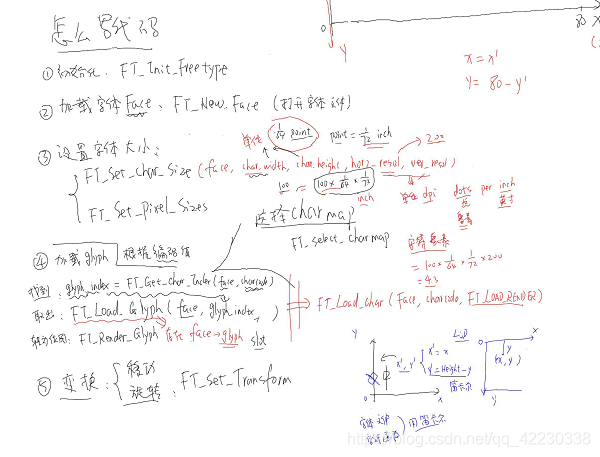 怎么写代码
① 初始化: FT_Init_Freetype
② 加载字体Face: FT_New_Face (打开字体文件)
③ 设置字体大小:
单位 1/64 point
point = 1/72 inch
200
FT_Set_Char_Size (face, char_width, char_height, horz_resol, ver_resol)
100
= 100 × 1/64 × 1/72
inch
单位 dpi dots per inch
点
英寸
像素
FT_Set_Pixel_Sizes
选择charmap
FT_select_charmap
= 100 × 1/64 × 1/72 × 200
= 4.3
④ 加载glyph 根据编码值
找到: glyph_index = FT_Get_Char_Index (face, charcode)
取出: FT_Load_Glyph (face, glyph_index, )
FT_Load_Char (face, charcode, FT_LOAD_RENDER)
转为位图: FT_Render_Glyph 存在 face→glyph slot
⑤ 变换: 移动
旋转: FT_Set_Transform
0
80
X
Y
x = x'
y = 80 - y'
Y
0
x
x', y'
x' = x
y' = Height - y
笛卡尔
LCD
0
x
y
(x, y)
Y
用笛卡尔
https://blog.csdn.net/qq_42230338